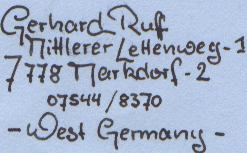 Gerhard Ruff
Mittlerer Lettenweg-1
7778 Markdorf-2
07544/8370
-West Germany-